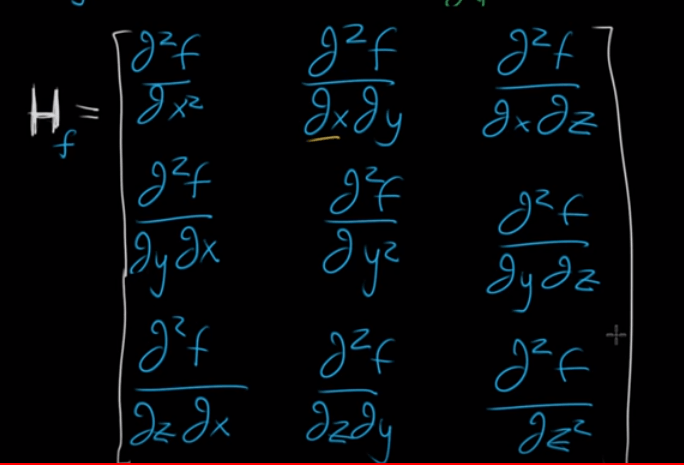 H_f = [ ∂²f/∂x² ∂²f/∂x∂y ∂²f/∂x∂z
∂²f/∂y∂x ∂²f/∂y² ∂²f/∂y∂z
∂²f/∂z∂x ∂²f/∂z∂y ∂²f/∂z² ]